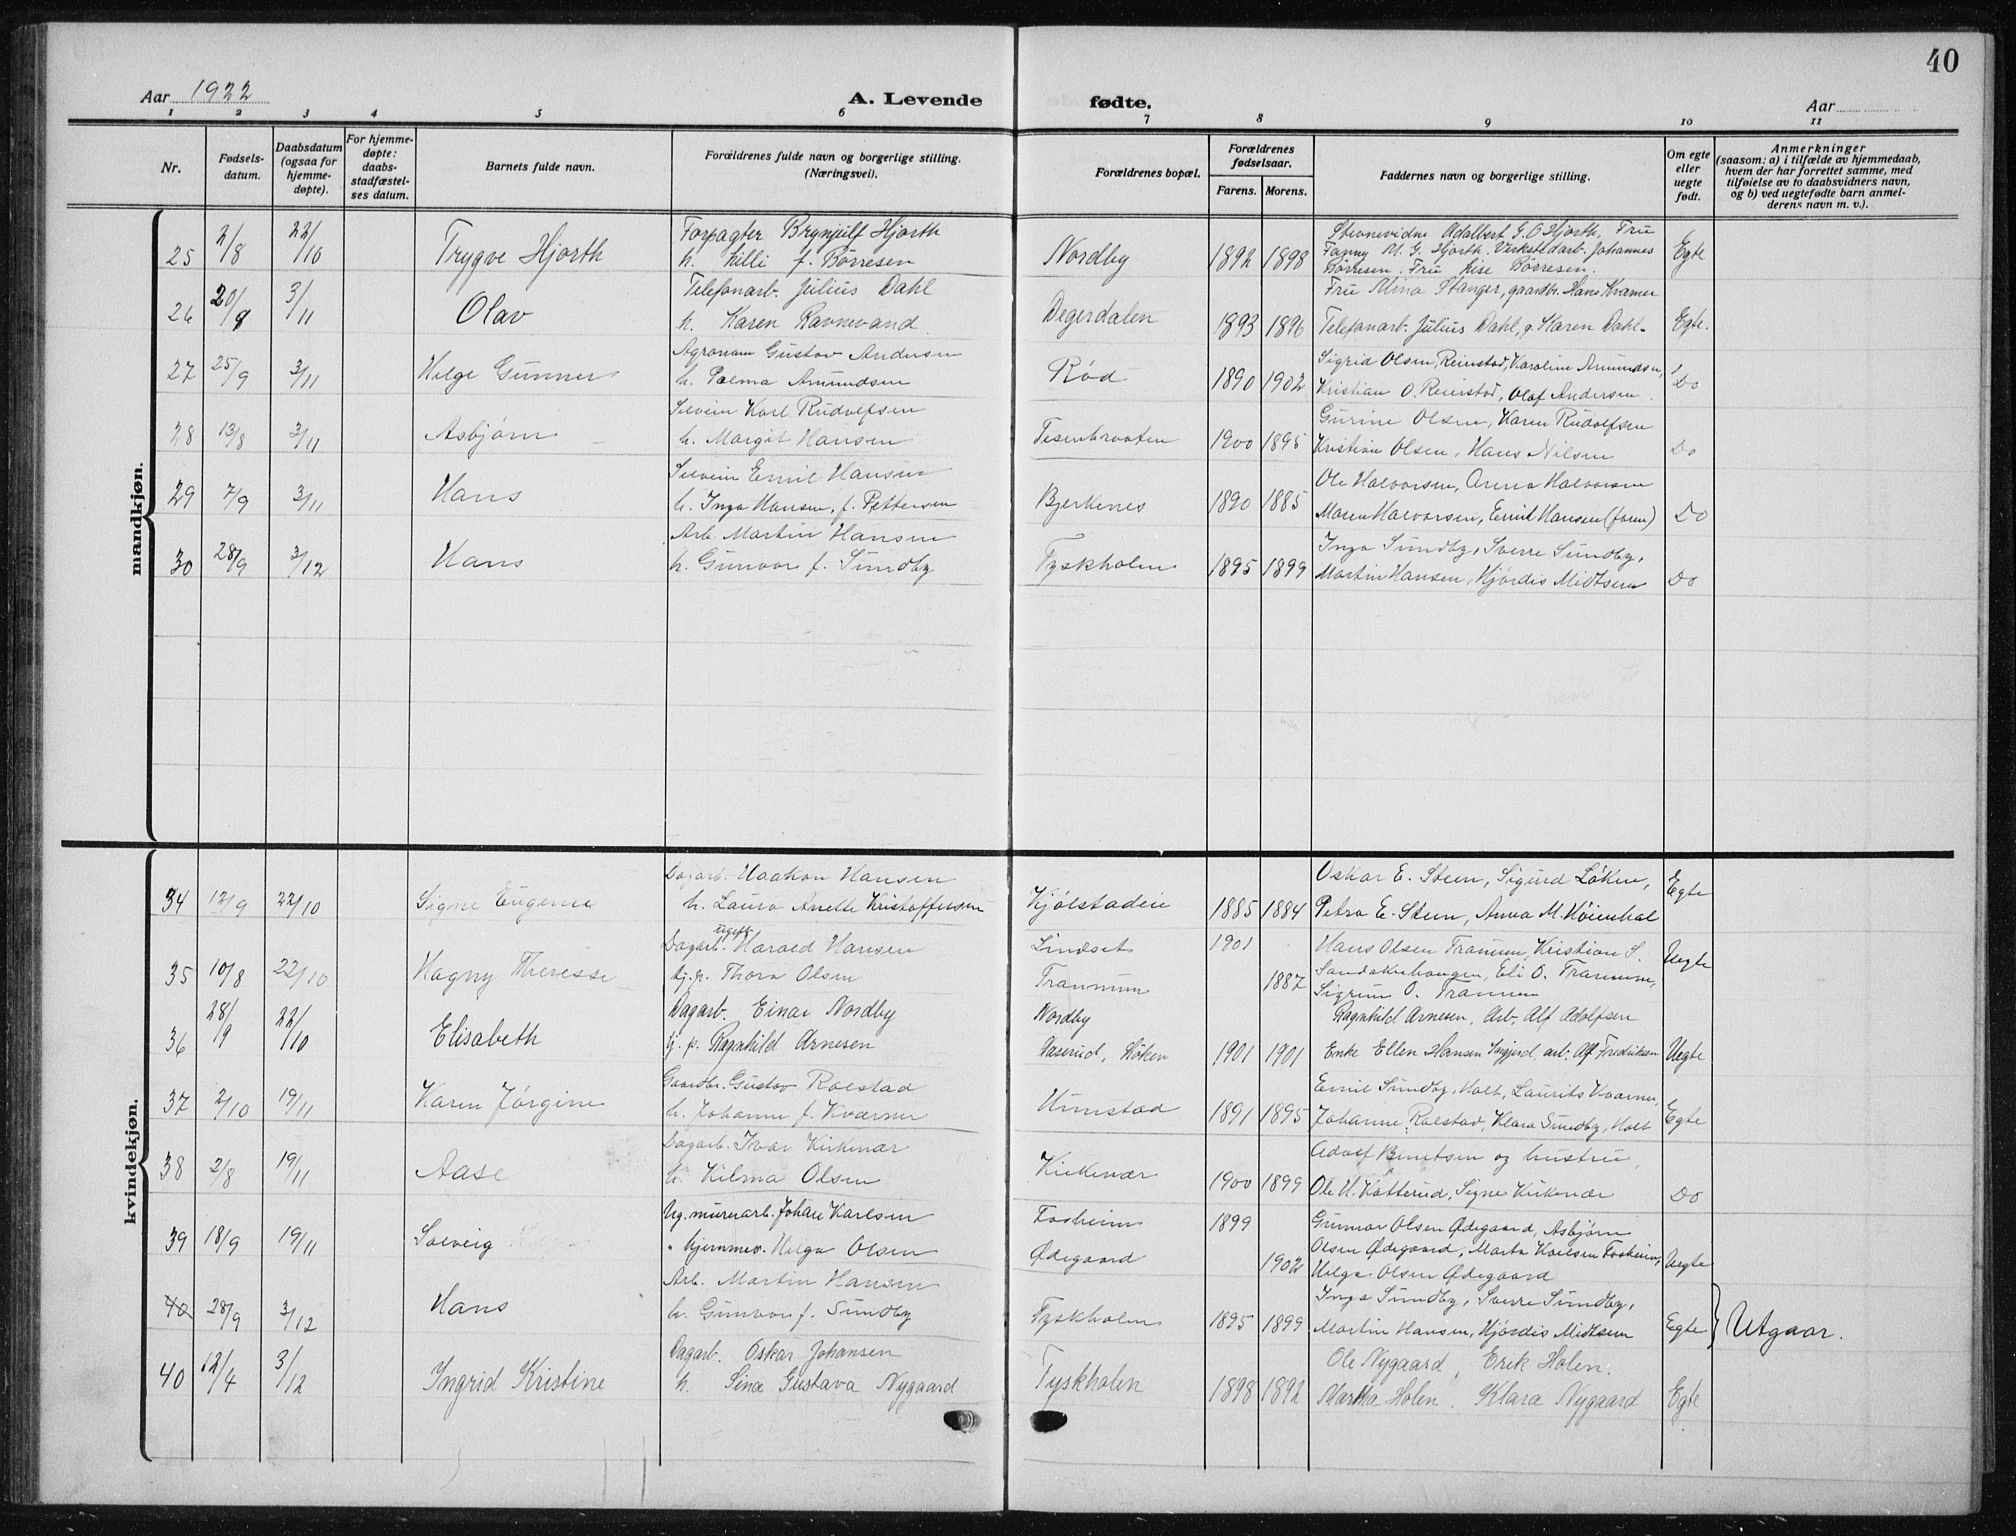 40
Aar 1922
A. Levende
fødte.
Aar
1 2 3 4 5 6 7 8 9 10 11
Nr.
Fødsels-
datum.
Daabsdatum
(ogsaa for
hjemme-
døpte).
For hjemme-
døpte:
daabs-
stadfæstel-
ses datum.
Barnets fulde navn.
Forældrenes fulde navn og borgerlige stilling.
(Næringsvei).
Forældrenes bopæl.
Forældrenes
fødselsaar.
Farens. Morens.
Faddernes navn og borgerlige stilling.
Om egte
eller
uegte
født.
Anmerkninger
(saasom: a) i tilfælde av hjemmedaab,
hvem der har forrettet samme, med
tilføielse av to daabsvidners navn,
og b) ved uegtefødte barn anmel-
derens navn m. v.).
mandkjøn.
Forpagter Brynjulf Hjorth Stevnevidne Adalbert G. O Hjorth, Fru
25 2/8 22/10 Trygve Hjorth h. Lilli f. Børresen Nordby 1892 1898 Fanny M. G. Hjorth. Verkstedarb. Johannes Egte
Børresen. Fru Lise Børresen.
Telefonarb. Julius Dahl Fru Alma Stanger, gaardbr. Hans Kramer
26 20/8 3/11 Olav h. Karen Ravnevand Degerdalen 1893 1896 Telefonarb. Julius Dahl, Karen Dahl. Egte.
Agronom Gustav Andersen Sigrid Olsen, Reierstad, Karoline Amundsen,
27 25/9 3/11 Helge Gunner h. Palma Amundsen Rød 1890 1902 Kristian O. Reierstad, Olaf Andersen. Do
Karl Rudolfsen Gurine Olsen, Karen Rudolfsen
28 13/8 3/11 Asbjørn h. Margit Hansen Tisenbraaten 1900 1895 Kristian Olsen, Hans Nilsen Do
Emil Hansen Ole Halvorsen, Anna Halvorsen
29 7/9 3/11 Hans h. Inga Hansen, f. Pettersen Bjerkenes 1890 1885 Maren Halvorsen, Emil Hansen (faren) Do
Arb. Martin Hansen Inga Sundby, Sverre Sundby,
30 28/9 3/12 Hans h. Gunvor f. Sundby Tyskholen 1895 1899 Martin Hansen, Hjørdis Midtsem Do
kvindekjøn.
Dagarb. Haakon Hansen Oskar E. Steen, Sigurd Løken,
34 12/9 22/10 Signe Eugenie h. Laura Anette Kristoffersen Kjølstadeie 1885 1884 Petra E. Steen, Anna M. Egte
ugift
Dagarb. Harald Hansen Lindset 1901 Hans Olsen Tranum, Kristian S.
35 10/8 22/10 Hagny Theresse Kj. p. Thora Olsen Tranum 1887 Sandakerhaugen, Eli O. Tranum, Uegte
Sigrun O. Tranum
Dagarb. Einar Nordby Nordby Ragnhild Arnesen. Arb. Alf Adolfsen
36 28/9 22/10 Elisabeth Kj. p. Ragnhild Arnesen Haserud, Løken 1901 1901 Enke Ellen Hansen Ingjerd, arb. Alf Fredriksen Uegte
Gaardbr. Gustav Rolstad Emil Sundby, Holt, Laurits Kværner,
37 2/10 19/11 Karen Jørgine h. Johanne f. Kværner Unnstad 1891 1895 Johanne Rolstad, Klara Sundby, Holt Egte
Dagarb. Ivar Kirkenær Adolf Berntsen og hustru,
38 2/8 19/11 Aase h. Hilma Olsen Kirkenær 1900 1899 Ole H. Katterud, Signe Kirkenær Do
Ug. murerarb. Johan Karlsen Fosheim 1899 Gunnar Olsen Ødegaard, Asbjørn
39 18/9 19/11 Solveig " hjemmev. Helga Olsen Ødegaard 1902 Olsen Ødegaard, Marta Karlsen Fosheim, Uegte
Helga Olsen Ødegaard
Arb. Martin Hansen Inga Sundby, Sverre Sundby,
40 28/9 3/12 Hans h. Gunvor f. Sundby Tyskholen 1895 1899 Martin Hansen, Hjørdis Midtsem Egte } Utgaar.
Dagarb. Oskar Johansen Ole Nygaard, Erik Holen.
40 12/4 3/12 Ingrid Kristine h. Sina Gustava Nygaard Tyskholen 1898 1892 Martha Holen. Klara Nygaard Egte